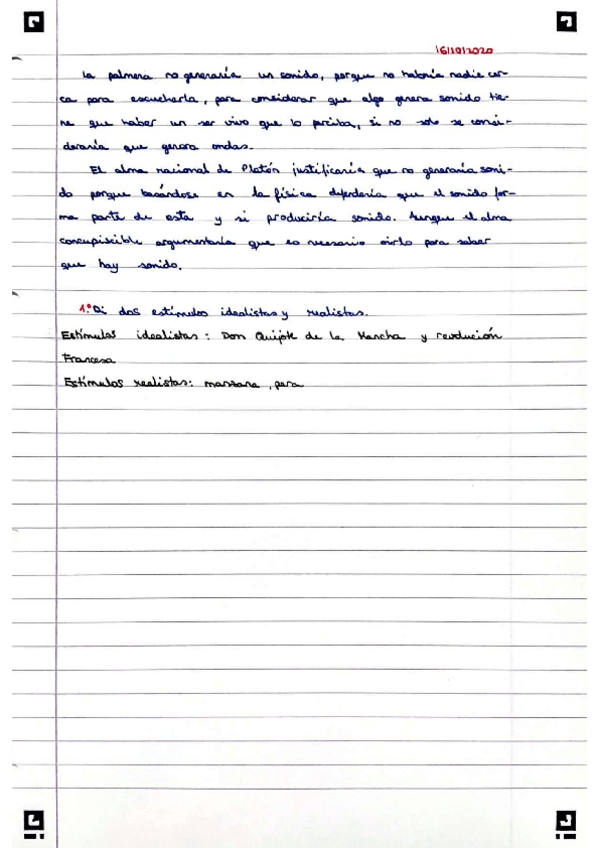 16/10/2020
La palmera no generaría un sonido, porque no habría nadie cer-
ca para escucharla, para considerar que algo genera sonido tie-
ne que haber un ser vivo que lo perciba, si no solo se consi-
deraría que genera ondas.
El alma racional de Platón justificaría que no generaría soni-
do porque basándose en la física defendería que el sonido for-
ma parte de esta y si produciría sonido. Aunque el alma
concupiscible argumentaría que es necesario oirlo para saber
que hay sonido.
1.º Di dos estímulos idealistas y realistas.
Estímulos idealistas: Don Quijote de la Mancha y revolución
Francesa
Estímulos realistas: manzana, pera